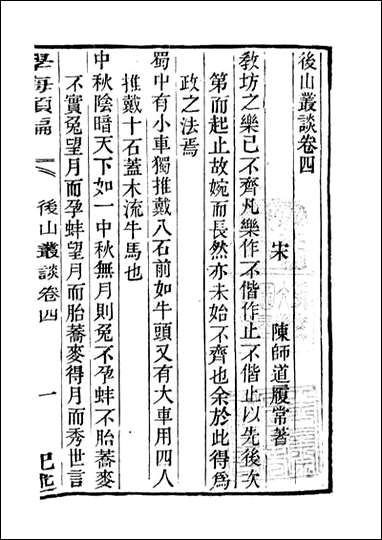 後山叢談卷四
宋　陳師道履常著
敎坊之樂已不齊凡樂作不偕作止不偕止以先後次
第而起止故婉而長然亦未始不齊也余於此得爲
政之法焉
蜀中有小車獨推戴八石前如牛頭又有大車用四人
推戴十石蓋木流牛馬也
中秋陰暗天下如一中秋無月則兔不孕蚌不胎蕎麥
不實兔望月而孕蚌望月而胎蕎麥得月而秀世言
學海類編　後山叢談卷四　一